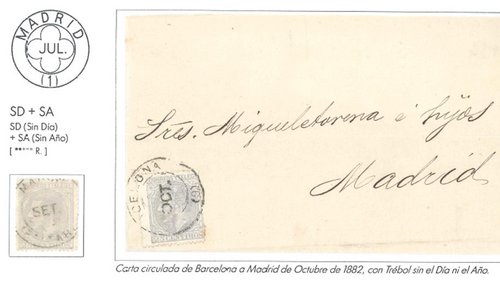 MADRID
JUL.
(1)
SD + SA
SD (Sin Día)
+ SA (Sin Año)
[ ••••• R. ]
SET.
Sres. Miqueletorena é hijos
Madrid
CELONA
OCT.
(1)
Carta circulada de Barcelona a Madrid de Octubre de 1882, con Trébol sin el Día ni el Año.